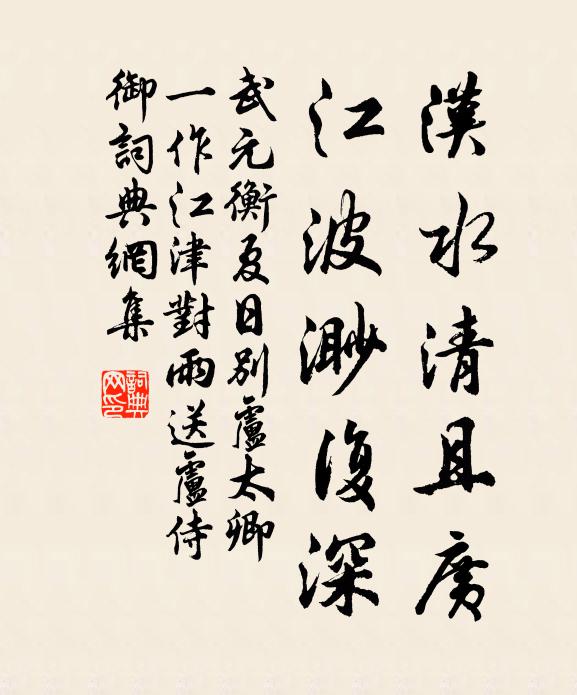 漢水清且廣
江波渺復深
武元衡夏日別盧太卿
一作江津對雨送盧侍
御詞典網集
詞典
网印